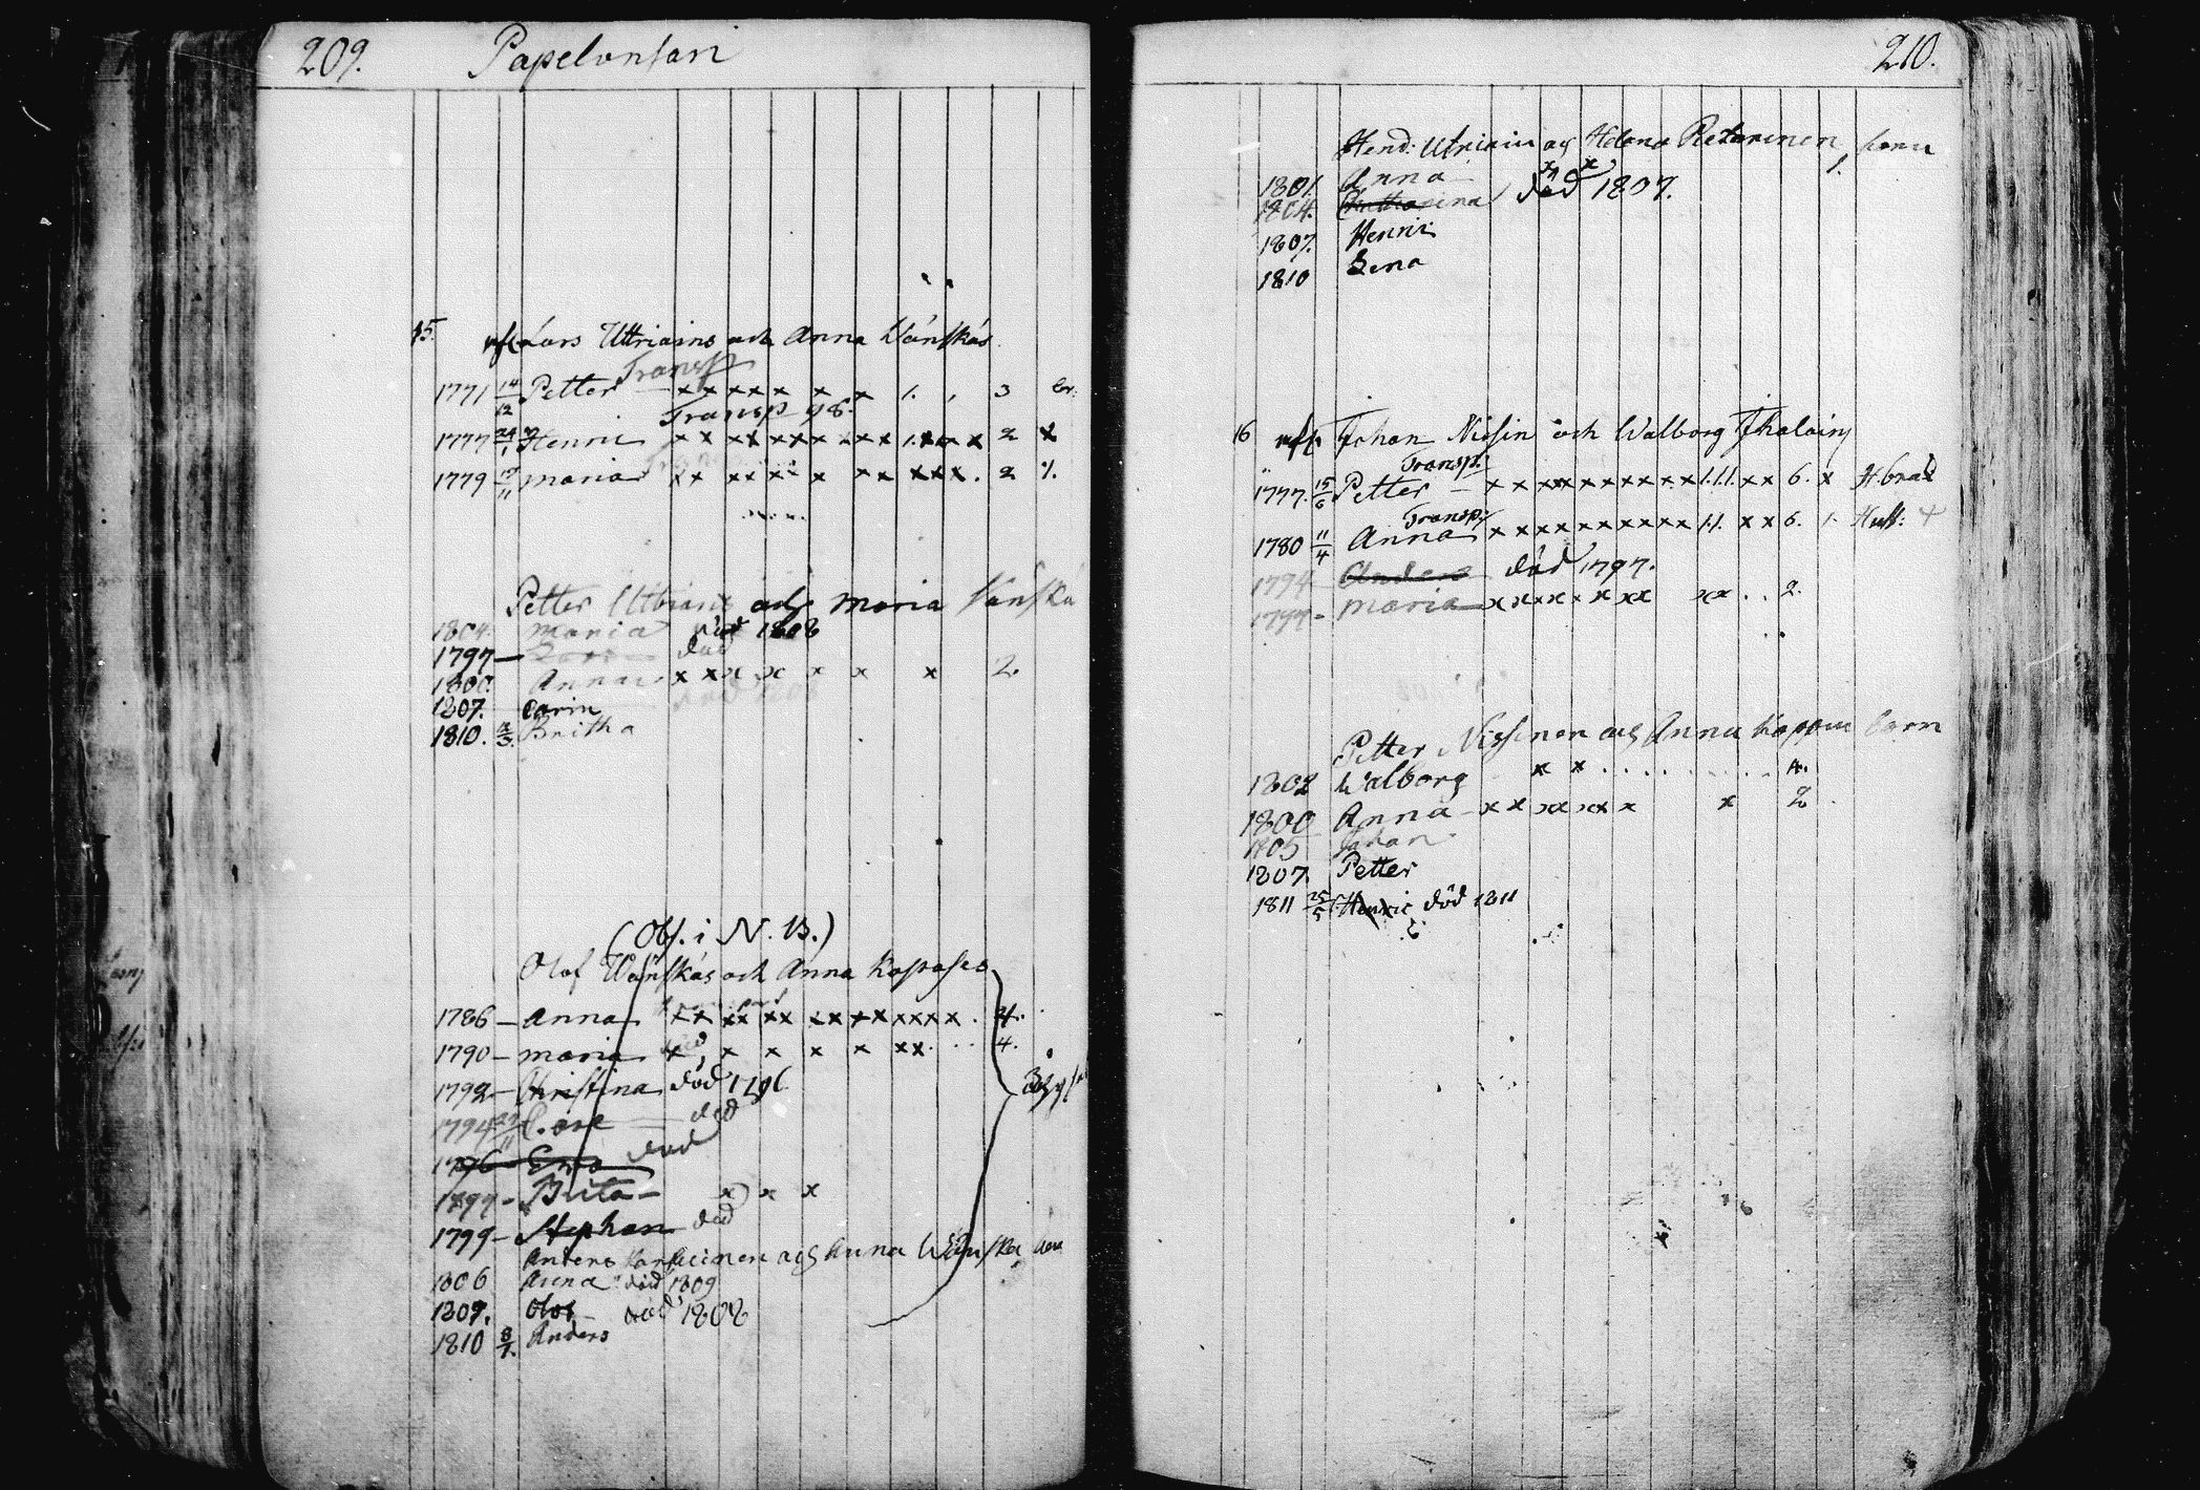 209. Papelonsari
15. Lars Uttriains och Anna Wänskäs
Transp
1771 14/12 Petter x x x x x x x 1. , 3
Transp 98.
1777 24/1 Henric x x x x x x x x x x 1. x x x 2 x
1779 17/11 Maria x x x x x x x x x x x x . 2 1.
Petter Uttriains och Maria Wänskä
1804. Maria död 1808
1797 — död
1800. Anna x x x x x x x 2.
1807. Carin
1810. 2/3. Britha
(Obs. i N. B.)
Olof Wänskäs och Anna Kaposes
1786 — Anna x x x x x x x x x x x x x x . 4.
1790 — Maria x x x x x x x . . . 4.
1792 — Christina död 1796
1794 27/11 död
1796 Eva död
1797 - Brita - x x x
1799 - Stephan död
Anders och Anna Wänskä
1806 Anna död 1809
1807. Olof - död 1808
1810 8/7. Anders
210.
Hend: Utriain och Helena Retarinen
1801. Anna x x 1.
1804. Catharina död 1807.
1807. Henric
1810 Lena
16 Johan Nissin och Walborg Ihalainj
Transp:
1777. 15/6 Petter - x x x x x x x x x x x 1.1.1. x x 6. x
Transp:
1780 11/4 Anna x x x x x x x x x x 1.1. x x 6. 1.
1794 Anders död 1797.
1799 - Maria - x x x x x x x x x x . . 2.
Petter Nissinen och Anna Koppin barn
1802 Walborg x x . . . . . . . . 4.
1800 Anna - x x x x x x x x 2
1805 Johan
1807. Petter
1811 25/5 Henric död 1811